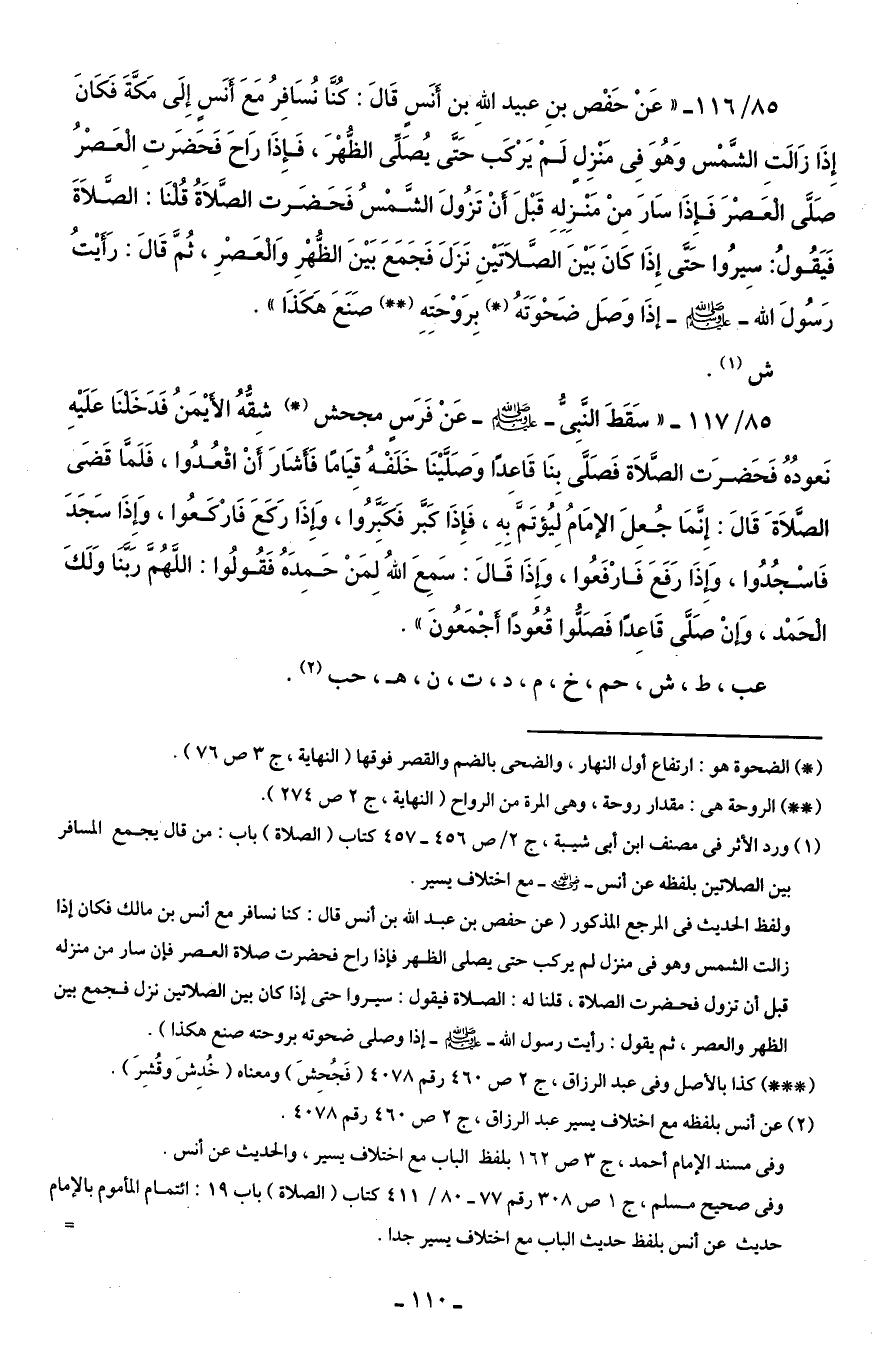 ١١٦/٨٥ـ « عَنْ حَفْص بن عبيد الله بن أَنَسٍ قَالَ : كُنَّا نُسَافِرُ مَعَ أَنَسٍ إِلَى مَكَّةَ فَكَانَ
إِذَا زَالَتِ الشَّمْس وَهُوَ فِى مَنْزِلٍ لَمْ يَرْكَب حَتَّى يُصَلِّى الظُّهْرَ ، فَإِذَا رَاحَ فَحَضَرت الْعَصْرُ
صَلَّى الْعَصْرَ فَإِذَا سَارَ مِنْ مَنْزِلِهِ قَبْلَ أَنْ تَزُولَ الشَّمْسُ فَحَضَرت الصَّلاَةُ قُلْنَا : الصَّلاَةَ
فَيَقُولُ: سِيرُوا حَتَّى إِذَا كَانَ بَيْنَ الصَّلاَتَيْنِ نَزَلَ فَجَمَعَ بَيْنَ الظُّهْرِ وَالْعَصْرِ ، ثُمَّ قَالَ : رَأَيْتُ
رَسُولَ الله ـ ﷺ ـ إِذَا وَصَل ضَحْوَتَهُ (*) بِرَوْحَتِهِ (**) صَنَعَ هَكَذَا » .
ش (١) .
١١٧/٨٥ ـ « سَقَطَ النَّبِىُّ ـ ﷺ ـ عَنْ فَرَسٍ مجحش (*) شِقُّهُ الأَيْمَنُ فَدَخَلْنَا عَلَيْهِ
نَعودُهُ فَحَضَرت الصَّلاَة فَصَلَّى بِنَا قَاعِدًا وَصَلَّيْنَا خَلْفَهُ قِيَامًا فَأَشَارَ أَنْ اقْعُدُوا ، فَلَمَّا قَضَى
الصَّلاَةَ قَالَ : إِنَّمَا جُعِلَ الإِمَامُ لِيُؤتَمَّ بِهِ ، فَإِذَا كَبَّر فَكَبِّرُوا ، وَإِذَا رَكَعَ فَارْكَعُوا ، وَإِذَا سَجَدَ
فَاسْجُدُوا ، وَإِذَا رَفَعَ فَارْفَعُوا ، وَإِذَا قَالَ : سَمِعَ اللهُ لِمَنْ حَمِدَهُ فَقُولُوا : اللَّهُمَّ رَبَّنَا وَلَكَ
الْحَمْد ، وَإِنْ صَلَّى قَاعِدًا فَصَلُّوا قُعُودًا أَجْمَعُونَ » .
عب ، ط ، ش ، حم ، خ ، م ، د ، ت ، ن ، هـ ، حب (٢) .
(*) الضحوة هو : ارتفاع أول النهار ، والضحى بالضم والقصر فوقها ( النهاية ، ج ٣ ص ٧٦ ) .
(**) الروحة هى : مقدار روحة ، وهى المرة من الرواح ( النهاية ، ج ٢ ص ٢٧٤ ).
(١) ورد الأثر فى مصنف ابن أبى شيبة ، ج ٢/ ص ٤٥٦ ـ ٤٥٧ كتاب ( الصلاة ) باب : من قال يجمع المسافر
بين الصلاتين بلفظه عن أنس ـ رضي الله عنه ـ مع اختلاف يسير .
ولفظ الحديث فى المرجع المذكور ( عن حفص بن عبد الله بن أنس قال : كنا نسافر مع أنس بن مالك فكان إذا
زالت الشمس وهو فى منزل لم يركب حتى يصلى الظهر فإذا راح فحضرت صلاة العصر فإن سار من منزله
قبل أن تزول فحضرت الصلاة ، قلنا له : الصلاة فيقول : سيروا حتى إذا كان بين الصلاتين نزل فجمع بين
الظهر والعصر ، ثم يقول : رأيت رسول الله ـ ﷺ ـ إذا وصلى ضحوته بروحته صنع هكذا ) .
(***) كذا بالأصل وفى عبد الرزاق ، ج ٢ ص ٤٦٠ رقم ٤٠٧٨ ( فَجُحشَ ) ومعناه ( خُدشَ وقُشرَ ) .
(٢) عن أنس بلفظه مع اختلاف يسير عبد الرزاق ، ج ٢ ص ٤٦٠ رقم ٤٠٧٨ .
وفى مسند الإمام أحمد ، ج ٣ ص ١٦٢ بلفظ الباب مع اختلاف يسير ، والحديث عن أنس .
وفى صحيح مسلم ، ج ١ ص ٣٠٨ رقم ٧٧ ـ ٨٠ / ٤١١ كتاب ( الصلاة ) باب ١٩ : ائتمام المأموم بالإمام
حديث عن أنس بلفظ حديث الباب مع اختلاف يسير جدا .
=
ـ ١١٠ ـ